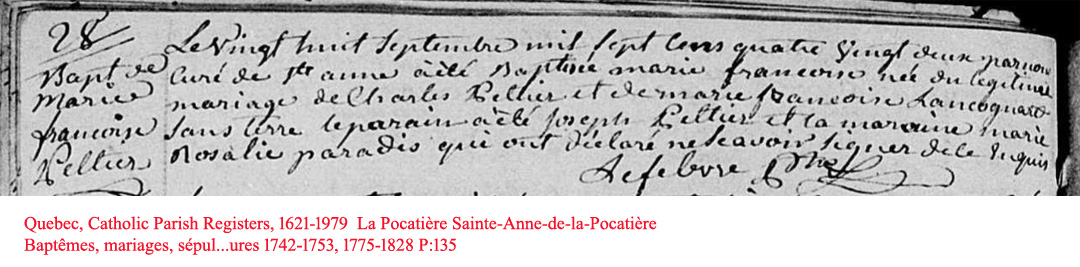 28
Bapt de
Marie
francoise
Peltier
Le vingt huit Septembre mil sept Cens quatre Vingt deux par nous
Curé de Ste anne à été Baptisée marie francoise née du legitime
mariage de Charles Peltier et de marie francoise Lancognard
Sans terre le parain à été joseph Peltier et la maraine marie
Rosalie paradis qui ont déclaré ne Scavoir Signer de ce Enquis
Lefebvre Ptre
Quebec, Catholic Parish Registers, 1621-1979 La Pocatière Sainte-Anne-de-la-Pocatière
Baptêmes, mariages, sépul...ures 1742-1753, 1775-1828 P:135